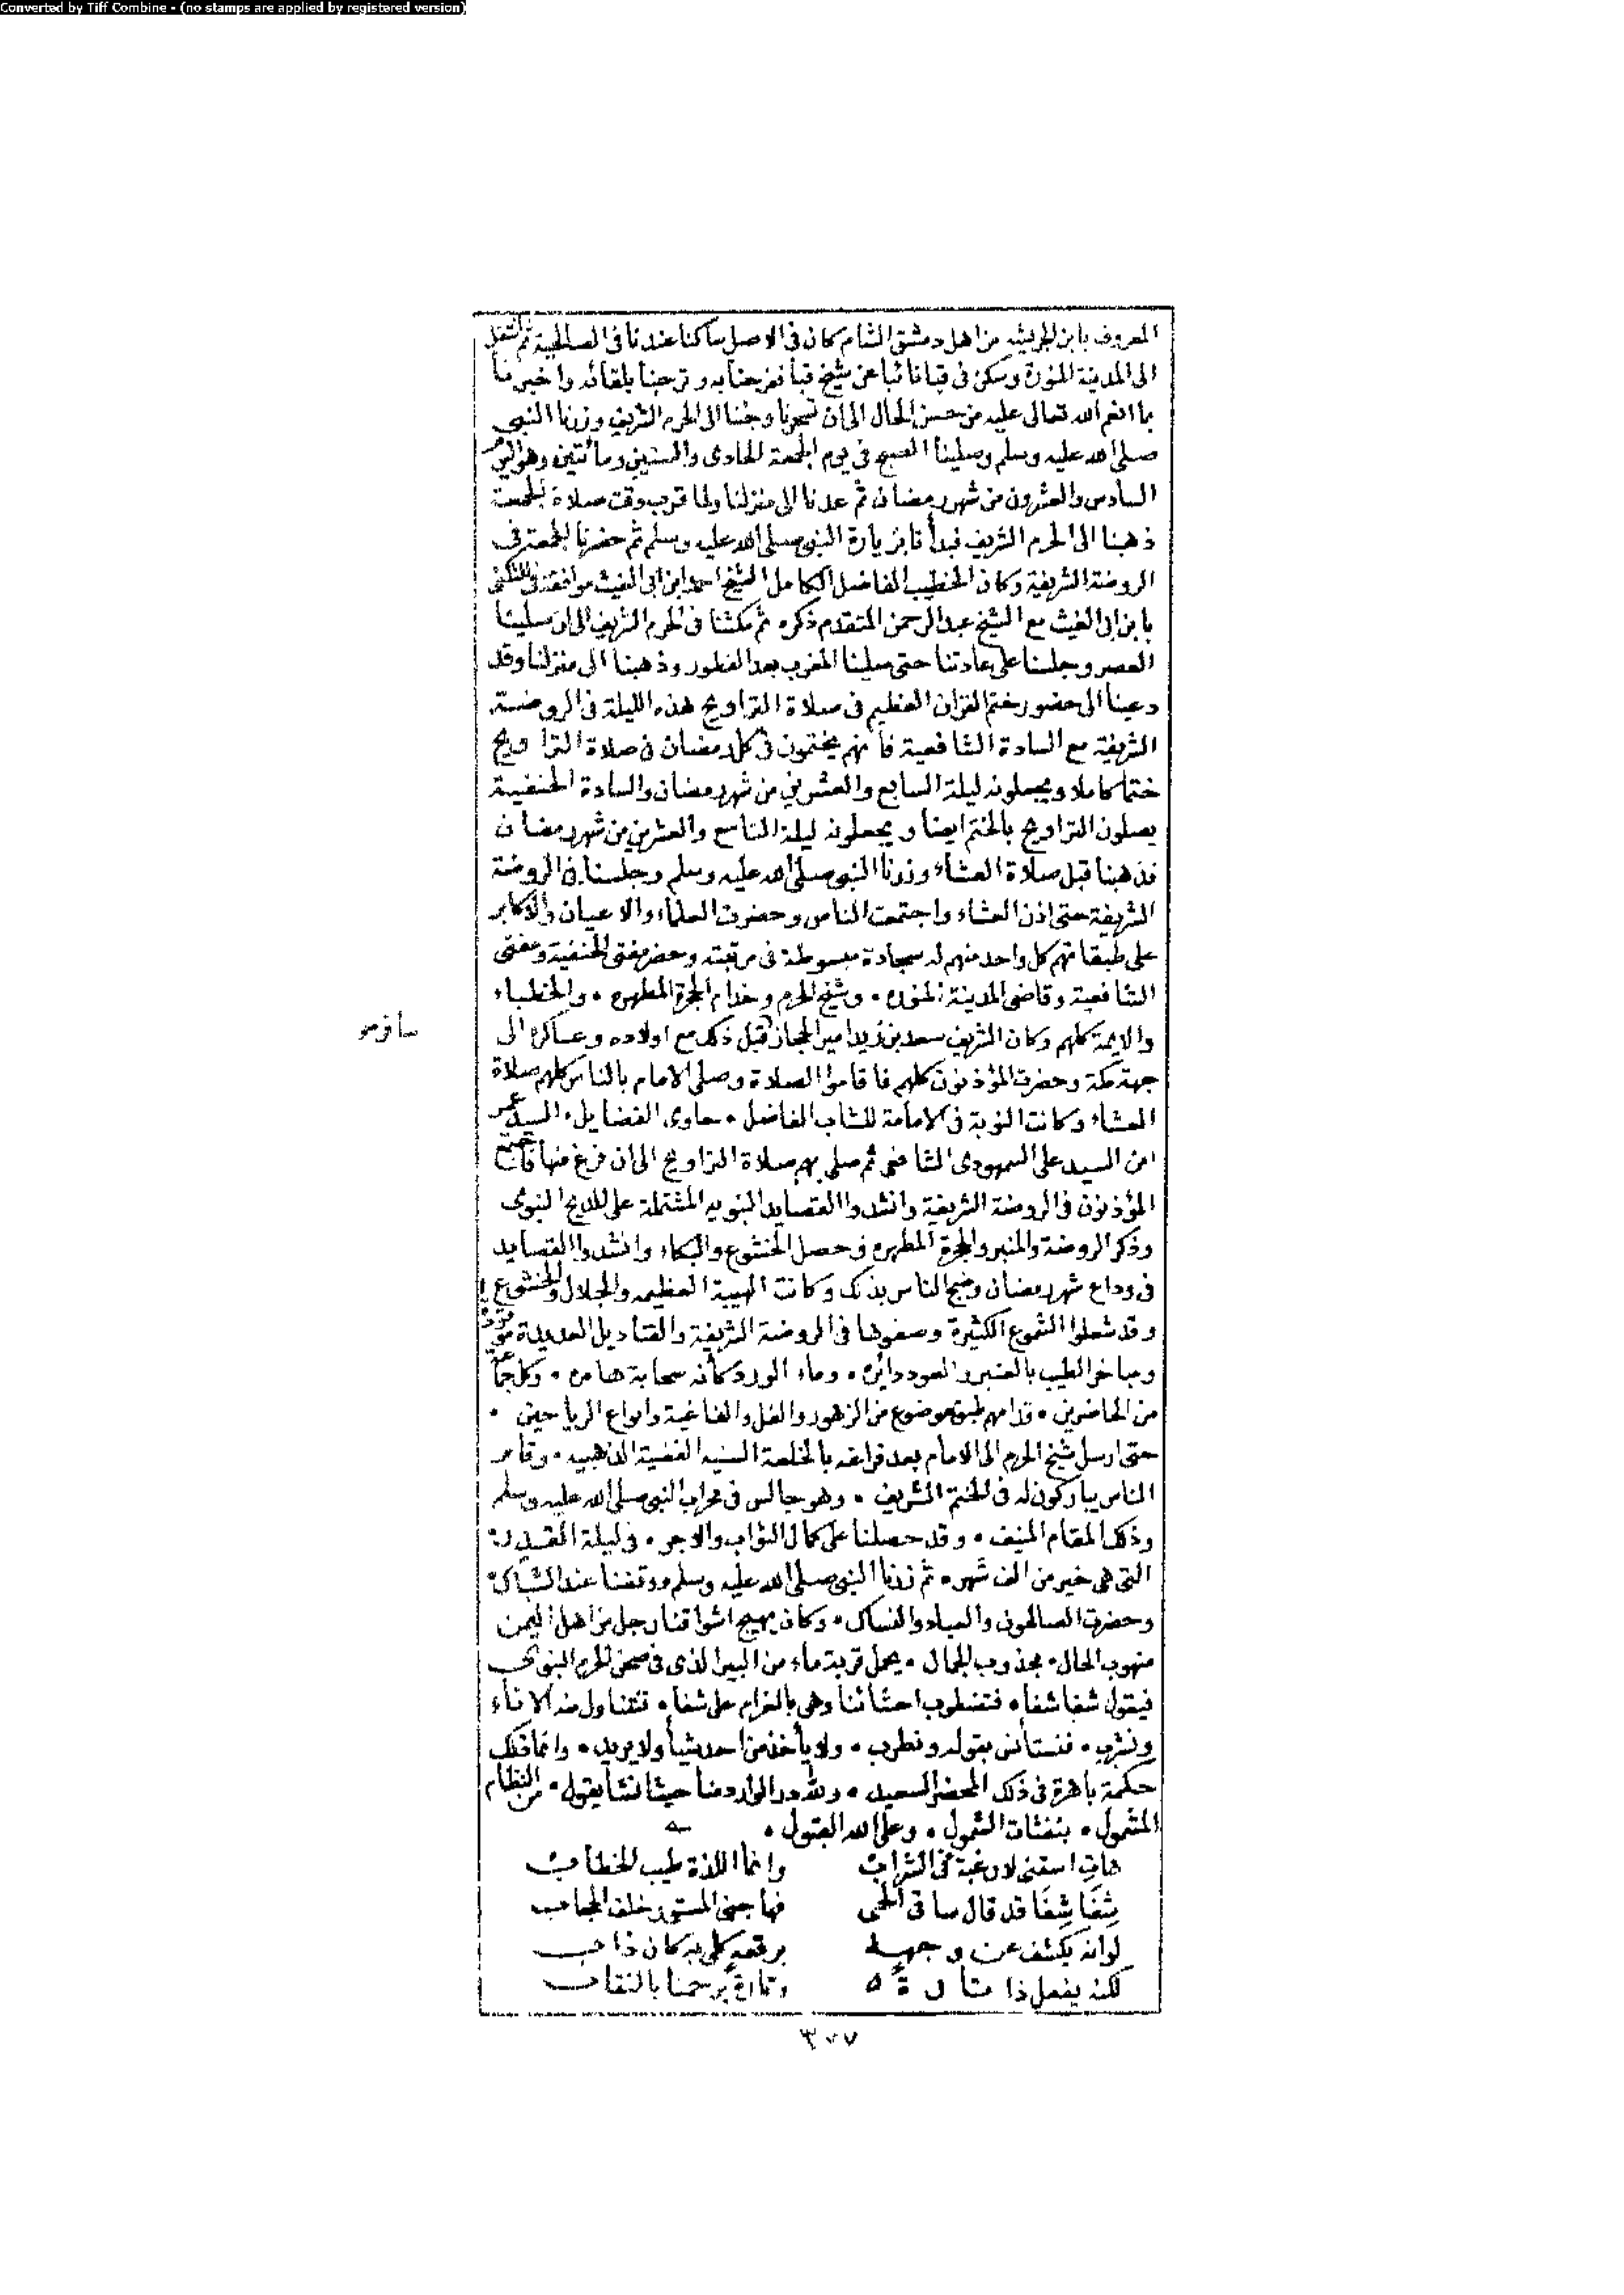 Converted by Tiff Combine - (no stamps are applied by registered version)
المعروف بابن من اهل دمشق الشام كان فى الاصل ساكنا عندنا فى الصالحية ثم انتقل
الى المدينة المنورة وسكن فى قبا نائبا عن شيخ قبا ففرحنا به وترحبنا بلقائه واخبرنا
بما انعم الله تعالى عليه من حسن الحال الى ان تسحرنا وجئنا الى الحرم الشريف وزرنا النبي
صلى الله عليه وسلم وصلينا الصبح فى يوم الجمعة الحادى والستين ومائتين وهو اليوم
السادس والعشرون من شهر رمضان ثم عدنا الى منزلنا ولما قرب وقت صلاة الجمعة
ذهبنا الى الحرم الشريف فبدأنا بزيارة النبي صلى الله عليه وسلم ثم حضرنا الجمعة فى
الروضة الشريفة وكان الخطيب الفاضل الكامل الشيخ احمد ابن ابى الغيث موافقة فى التكنى
بابن ابى الغيث مع الشيخ عبد الرحمن المتقدم ذكره ثم مكثنا فى الحرم الشريف الى ان صلينا
العصر وجلسنا على عادتنا حتى صلينا المغرب بعد الفطور وذهبنا الى منزلنا وقد
دعينا الى حضور ختم القران العظيم فى صلاة التراويح هذه الليلة فى الروضة
الشريفة مع السادة الشافعية فانهم يختمون فى كل رمضان فى صلاة التراويح
ختما كاملا ويجعلونه ليلة السابع والعشرين من شهر رمضان والسادة الحنفية
يصلون التراويح بالختم ايضا ويجعلونه ليلة التاسع والعشرين من شهر رمضان
فذهبنا قبل صلاة العشاء وزرنا النبي صلى الله عليه وسلم وجلسنا فى الروضة
الشريفة حتى اذن العشاء واجتمعت الناس وحضرت العلماء والاعيان والاكابر
على طبقاتهم كل واحد منهم له سجادة مبسوطة فى مرتبته وحضر مفتى الحنفية ومفتى
الشافعية وقاضى المدينة المنوره • وشيخ الحرم وخدام الحجرة المطهره • والخطباء
والايمة كلهم وكان الشريف سعد بن زيد امير الحجاز قبل ذلك مع اولاده وعساكره الى
سافر مو
جهة مكة وحضرت المؤذنون كلهم فاقاموا الصلاة وصلى الامام بالناس كلهم صلاة
العشاء وكانت النوبة فى الامامة للشاب الفاضل • حاوى الفضايل • السيد عمر
ابن السيد على السمهودى الشافعى ثم صلى بهم صلاة التراويح الى ان فرغ منها فاجتمع
المؤذنون فى الروضة الشريفة وانشدوا القصايد النبويه المشتملة على المديح النبوى
وذكر الروضة والمنبر والحجرة المطهره فحصل الخشوع والبكاء وانشدوا القصايد
فى وداع شهر رمضان وضج الناس بذلك وكانت الهيبة العظيمه والجلال والخشوع
وقد شعلوا الشموع الكثيرة وصفوها فى الروضة الشريفة والقناديل العديدة موقودة
ومباخر الطيب بالعنبر والعود دائره • وماء الورد كأنه سحابة هامره • وكل جماعة
من الحاضرين • قدامهم طبق موضوع من الزهور والفل والفاغية وانواع الرياحين •
حتى ارسل شيخ الحرم الى الامام بعد فراغه بالخلعة السنيه الفضية الذهبيه • وقام
الناس يباركون له فى الختم الشريف • وهو جالس فى محراب النبي صلى الله عليه وسلم
وذلك المقام المنيف • وقد حصلنا على كمال الثواب والاجر • فى ليلة القدر
التى هى خير من الف شهر • ثم زرنا النبي صلى الله عليه وسلم ووقفنا عند الشباك
وحضرت الصالحون والعباد والنساك • وكان يهيج اشواقنا رجل من اهل اليمن
منهوب الحال • مجذوب الجمال • يحمل قربة ماء من البير الذى فى صحن الحرم النبوى
فيقول شفا شفا • فتضطرب احشائنا وهى بالغرام على شفا • فنتناول منه الاناء
ونشرب • فنستأنس بقوله ونطرب • ولا يأخذ من احد شيأ ولا يريد • وانما ذلك
حكمة باهرة فى ذلك المحضر السعيد • ولله در الوارد منا حيث انشا يقول • من النظام
المشمول • بنفثات الشمول • وعلى الله القبول •
هات اسقنى لا رغبة فى الشراب وانما اللذة طيب الخطاب
شفا شفا قد قال ساقى الحمى فهاجنى المستور خلف الحجاب
لوانه يكشف عن وجهه برقعه كلى به كان ذاب
لكنه يفعل ذا تارة وتارة يرحمنا بالنقاب
٣٠٧